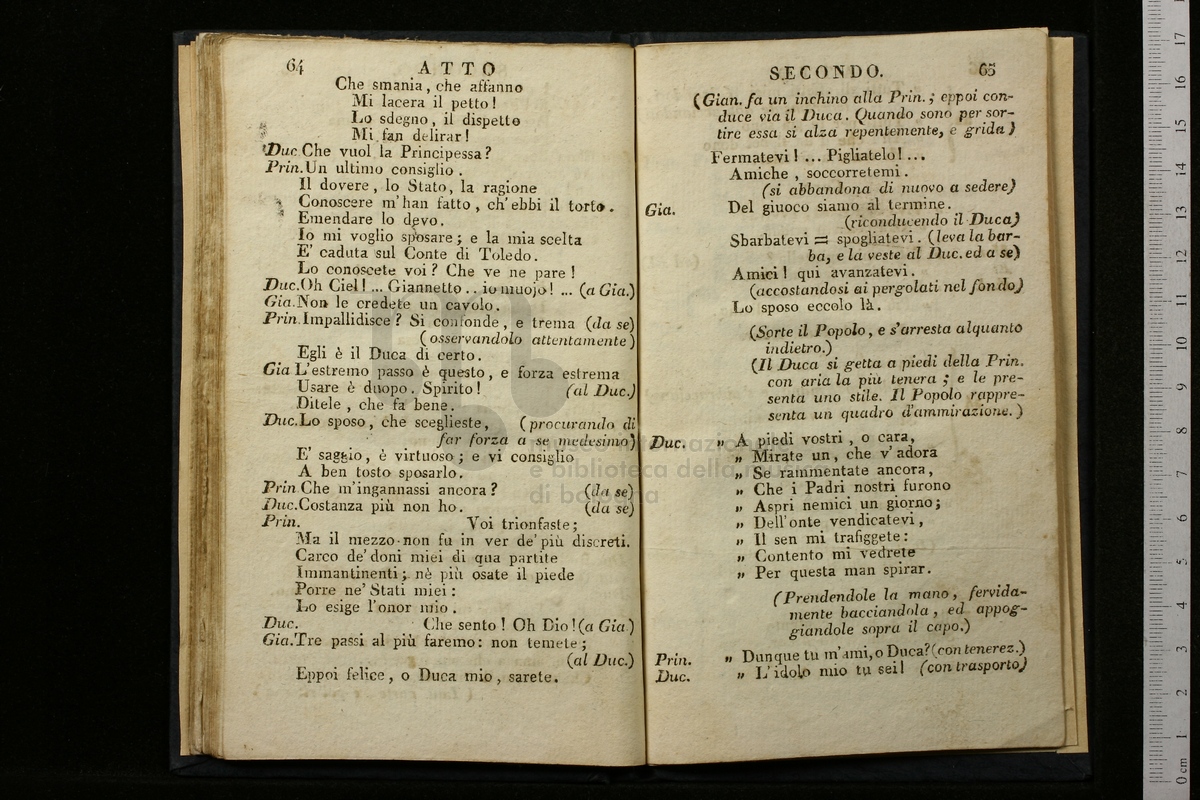 64
ATTO
Che smania, che affanno
Mi lacera il petto!
Lo sdegno, il dispetto
Mi fan delirar!
Duc. Che vuol la Principessa?
Prin. Un ultimo consiglio.
Il dovere, lo Stato, la ragione
Conoscere m'han fatto, ch'ebbi il torto.
Emendare lo devo.
Io mi voglio sposare; e la mia scelta
E' caduta sul Conte di Toledo.
Lo conoscete voi? Che ve ne pare!
Duc. Oh Ciel! ... Giannetto .. io muojo! ... (a Gia.)
Gia. Non le credete un cavolo.
Prin. Impallidisce? Si confonde, e trema (da se)
(osservandolo attentamente)
Egli è il Duca di certo.
Gia L'estremo passo è questo, e forza estrema
Usare è duopo. Spirito! (al Duc.)
Ditele, che fa bene.
Duc. Lo sposo, che sceglieste, (procurando di
far forza a se medesimo)
E' saggio, è virtuoso; e vi consiglio
A ben tosto sposarlo.
Prin Che m'ingannassi ancora? (da se)
Duc. Costanza più non ho. (da se)
Prin. Voi trionfaste;
Ma il mezzo non fu in ver de' più discreti.
Carco de' doni miei di qua partite
Immantinenti; nè più osate il piede
Porre ne' Stati miei:
Lo esige l'onor mio.
Duc. Che sento! Oh Dio! (a Gia.)
Gia. Tre passi al più faremo: non temete;
(al Duc.)
Eppoi felice, o Duca mio, sarete.
SECONDO.
65
(Gian. fa un inchino alla Prin.; eppoi con-
duce via il Duca. Quando sono per sor-
tire essa si alza repentemente, e grida)
Fermatevi! ... Pigliatelo! ...
Amiche, soccorretemi.
(si abbandona di nuovo a sedere)
Gia. Del giuoco siamo al termine.
(riconducendo il Duca)
Sbarbatevi = spogliatevi. (leva la bar-
ba, e la veste al Duc. ed a se)
Amici! qui avanzatevi.
(accostandosi ai pergolati nel fondo)
Lo sposo eccolo là.
(Sorte il Popolo, e s'arresta alquanto
indietro.)
(Il Duca si getta a piedi della Prin.
con aria la più tenera; e le pre-
senta uno stile. Il Popolo rappre-
senta un quadro d'ammirazione.)
Duc. „ A piedi vostri, o cara,
„ Mirate un, che v'adora
„ Se rammentate ancora,
„ Che i Padri nostri furono
„ Aspri nemici un giorno;
„ Dell'onte vendicatevi,
„ Il sen mi trafiggete:
„ Contento mi vedrete
„ Per questa man spirar.
(Prendendole la mano, fervida-
mente bacciandola, ed appog-
giandole sopra il capo.)
Prin. „ Dunque tu m'ami, o Duca? (con tenerez.)
Duc. „ L'idolo mio tu sei! (con trasporto)
e biblioteca della
di bologna
0 cm 1 2 3 4 5 6 7 8 9 10 11 12 13 14 15 16 17